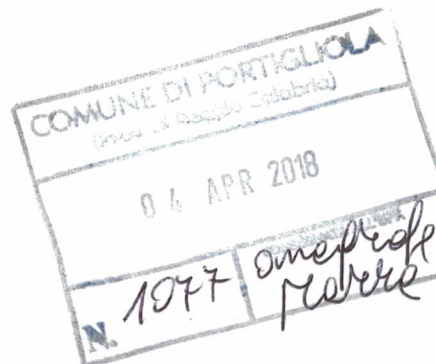 COMUNE DI PORTIGLIOLA
(Prov. di Reggio Calabria)
04 APR 2018
N. 1077